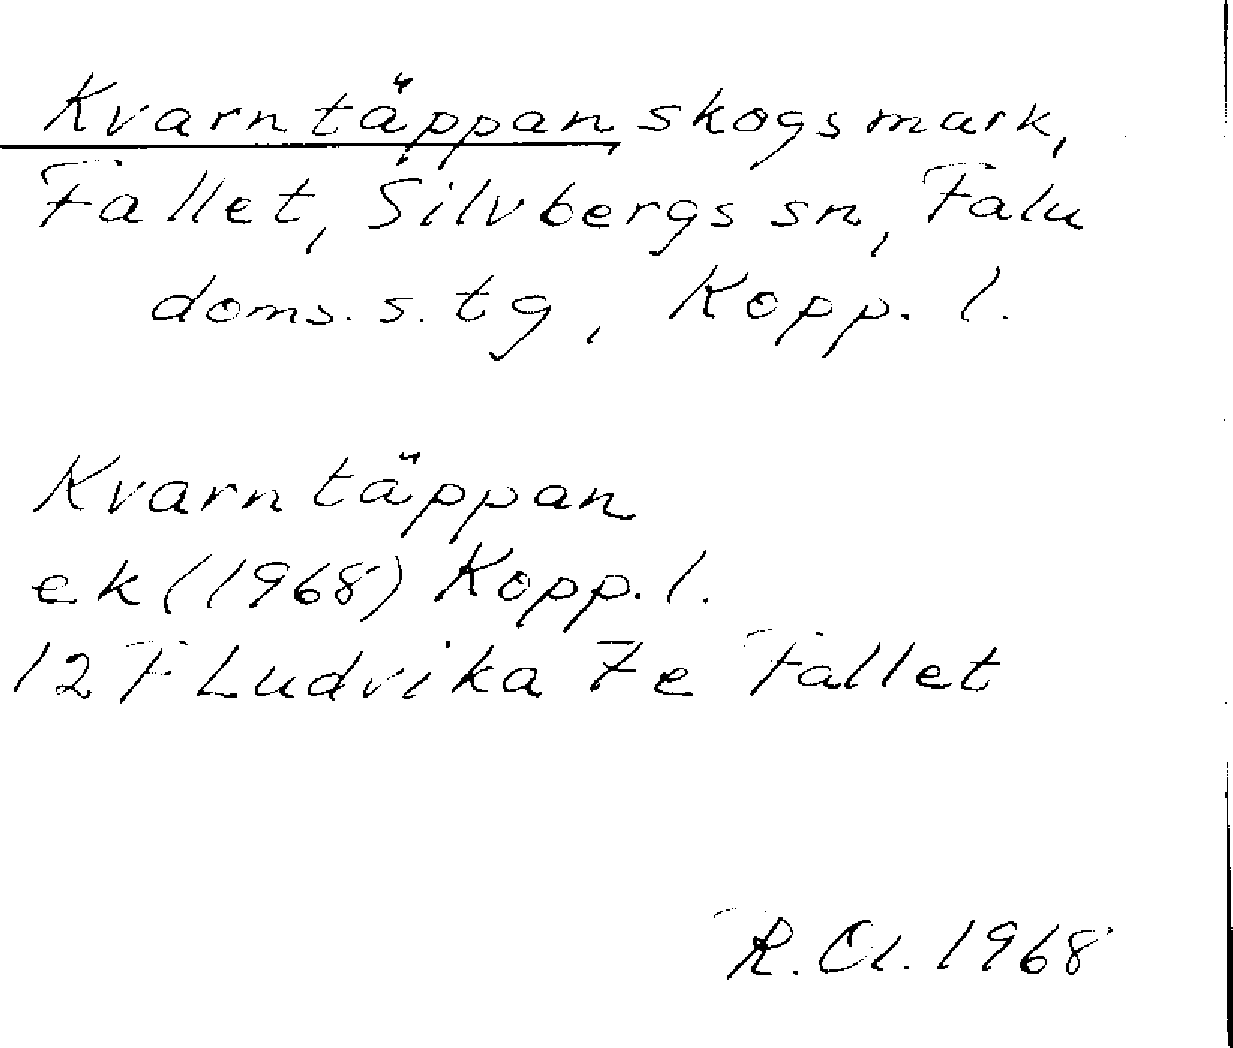 Kvarntäppan, skogsmark,
Fallet, Silvbergs sn, Falu
doms. s. tg, Kopp. l.
Kvarntäppan
ek (1968) Kopp. l.
12 F Ludvika 7e Fallet
R. Cl. 1968